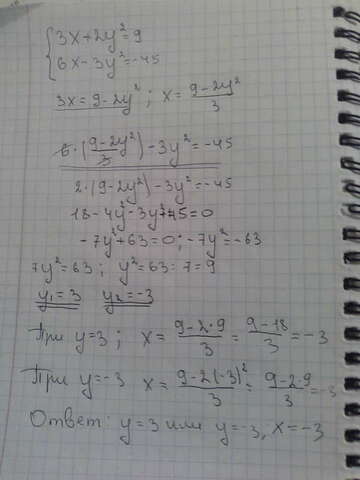 {3x+2y²=9
6x-3y²=-45
3x=9-2y²; x=(9-2y²)/3
6·((9-2y²)/3)-3y²=-45
2·(9-2y²)-3y²=-45
18-4y²-3y²+45=0
-7y²+63=0; -7y²=-63
7y²=63; y²=63:7=9
y₁=3 y₂=-3
При y=3; x=(9-2·9)/3=(9-18)/3=-3
При y=-3 x=(9-2(-3)²)/3=(9-2·9)/3=-3
Ответ: y=3 или y=-3; x=-3